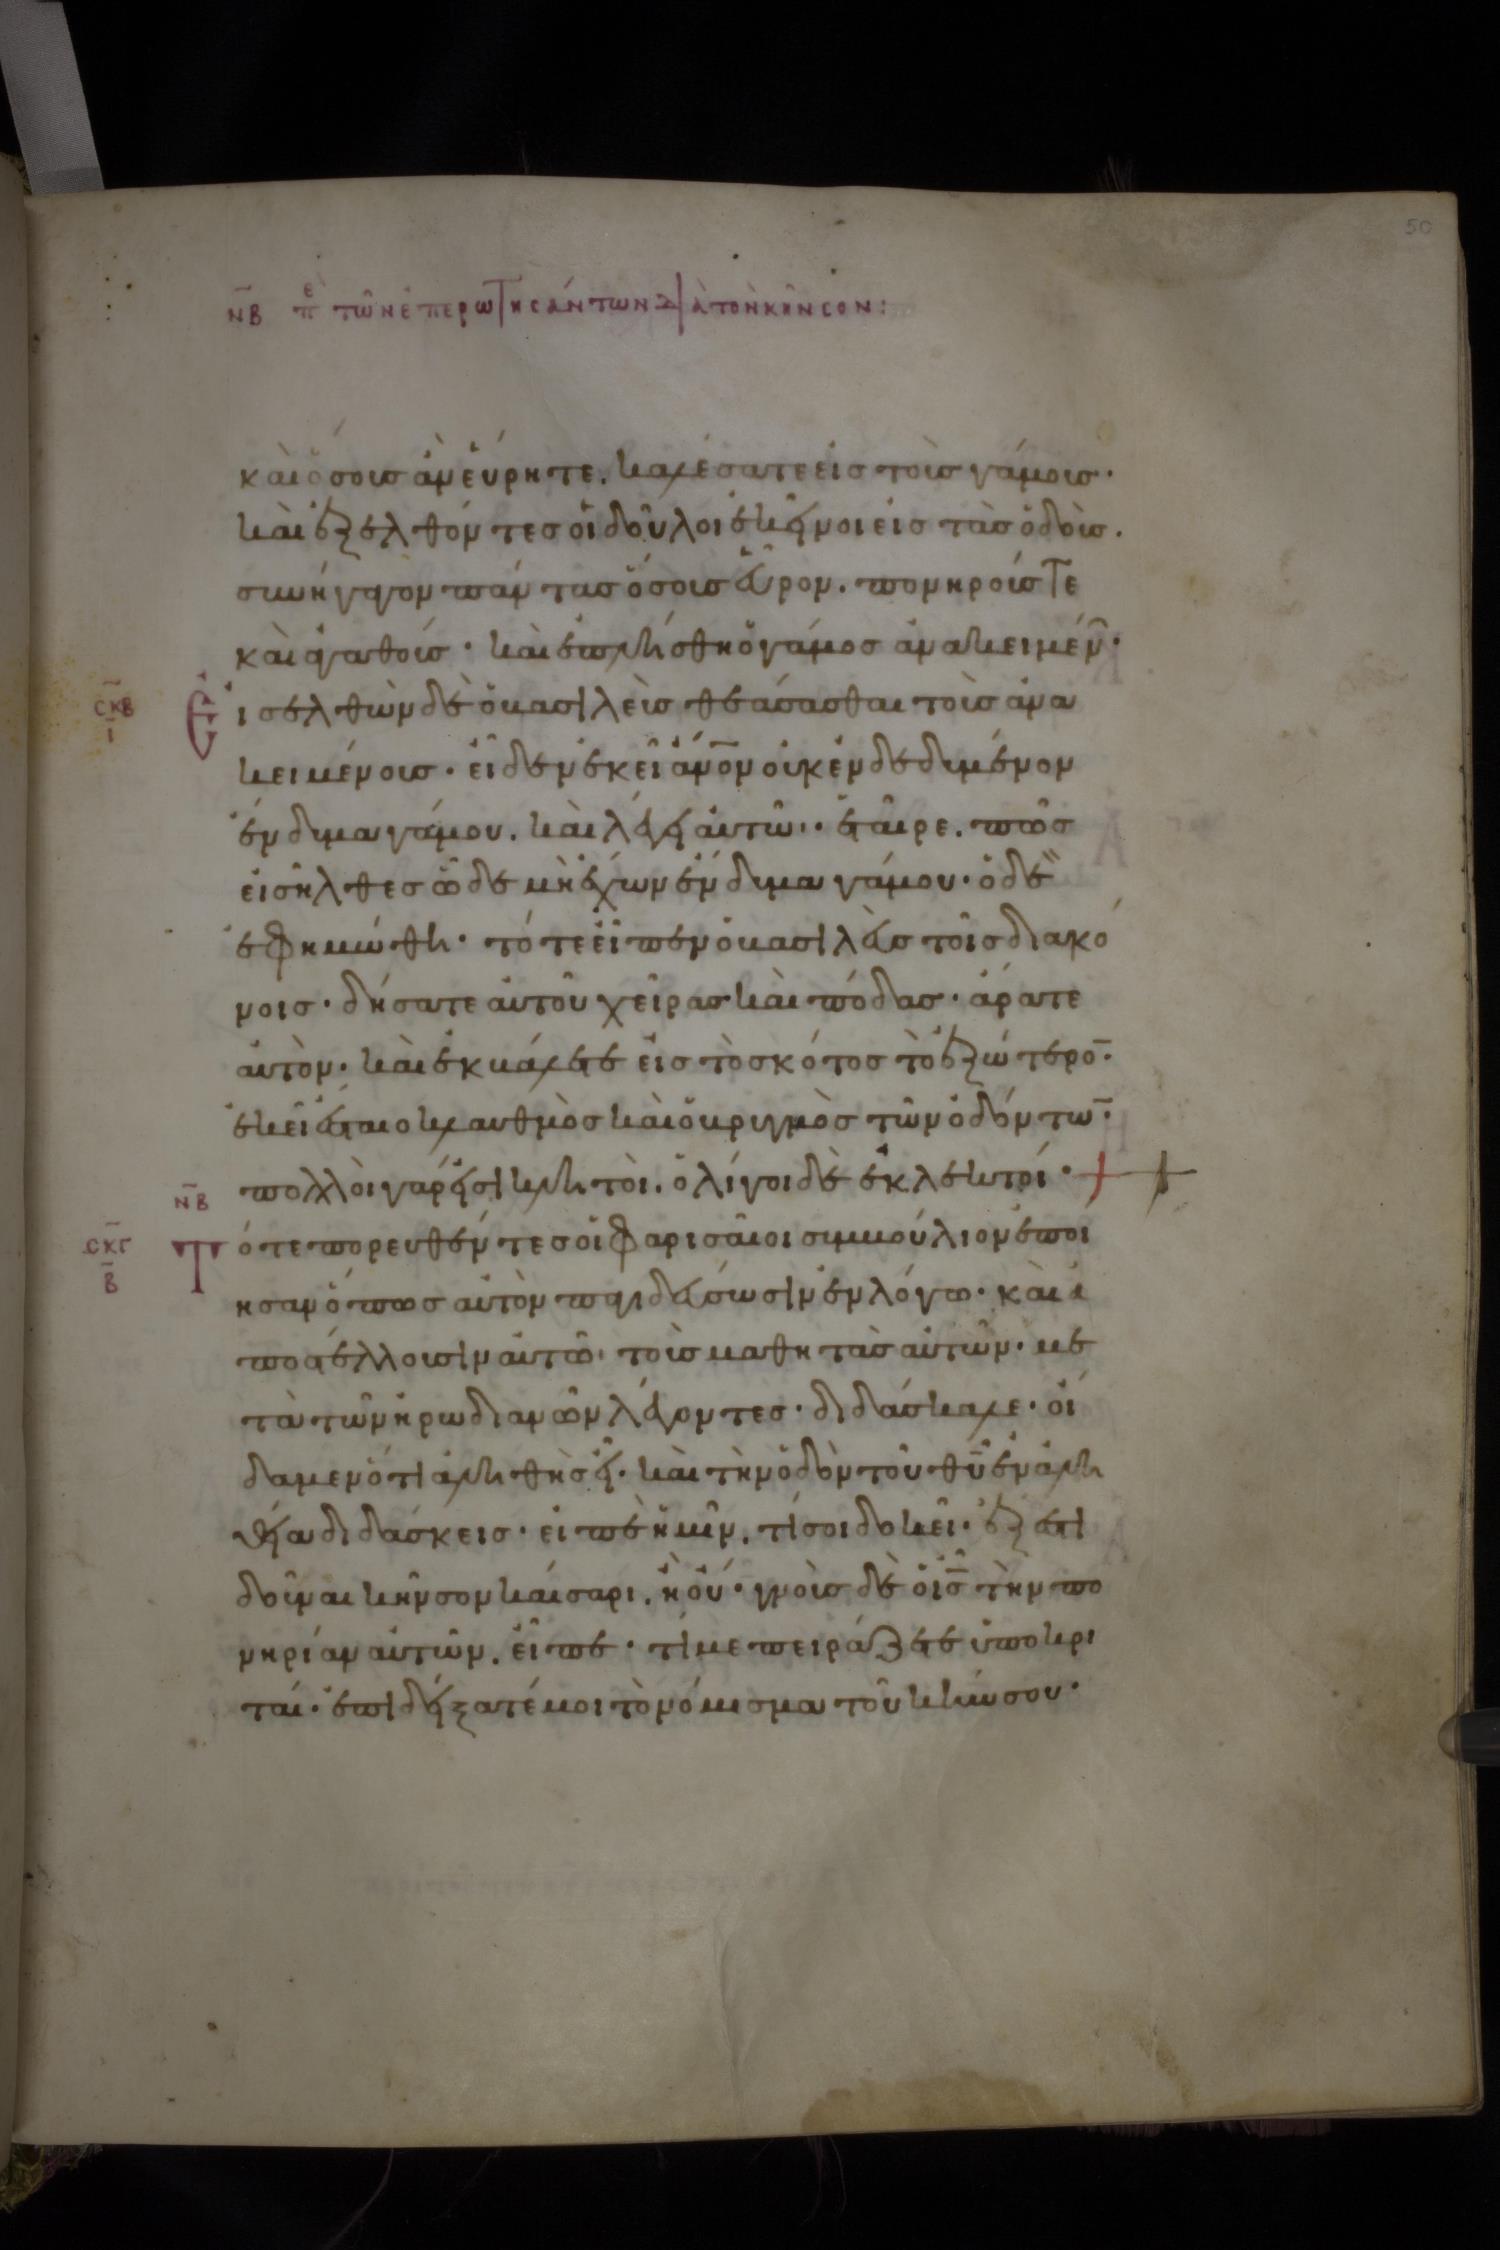 50
ΝΒ περὶ τῶν ἐπερωτησάντων διὰ τὸν κῆνσον:
καὶ ὅσους ἀν εὕρητε. καλέσατε εἰς τοὺς γάμους·
καὶ ἐξελθόντες οἱ δοῦλοι ἐκεῖνοι εἰς τὰς ὁδούς.
συνήγαγον πάντας ὅσους εὗρον. πονηρούς τε
καὶ ἀγαθούς· καὶ ἐπλήσθη ὁ γάμος ἀνακειμέν·
ΣΚΒ Ι
Εἰσελθὼν δὲ ὁ βασιλεὺς θεάσασθαι τοὺς ἀνα
κειμένους· εἶδεν ἐκεῖ ἄνον οὐκ ἐνδεδυμένον
ἔνδυμα γάμου. καὶ λέγει αὐτῶ· ἑταῖρε. πῶς
εἰσῆλθες ὧδε μὴ ἔχων ἔνδυμα γάμου· ὁ δὲ
ἐφημώθη· τότε εἶπεν ὁ βασιλεὺς τοῖς διακό
νοις· δήσατε αὐτοῦ χεῖρας καὶ πόδας· ἄρατε
αὐτὸν· καὶ ἐκβάλετε εἰς τὸ σκότος τὸ ἐξώτερο·
ἐκεῖ ἔσται ὁ κλαυθμὸς καὶ ὁ βρυγμὸς τῶν ὀδόντω·
πολλοὶ γάρ εἰσι κλητοὶ. ὀλίγοι δὲ ἐκλεκτοί·
ΝΒ
ΣΚΓ Β
Τότε πορευθέντες οἱ φαρισαῖοι συμβούλιον ἐποί
ησαν ὅπως αὐτὸν παγιδεύσωσιν ἐν λόγω· καὶ ἀ
ποστέλλουσιν αὐτῶ· τοὺς μαθητὰς αὐτῶν· με
τὰ τῶν ἡρωδιανῶν λέγοντες· διδάσκαλε· οἴ
δαμεν ὅτι ἀληθὴς εἶ· καὶ τὴν ὁδὸν τοῦ θυ ἐν ἀλη
θεία διδάσκεις· εἰπὲ ἡμῖν. τί σοι δοκεῖ· ἔξεστι
δοῦναι κῆνσον καίσαρι. ἢ οὔ· γνοὺς δὲ ὁ ις τὴν πο
νηρίαν αὐτῶν. εἶπε· τί με πειράζετε ὑποκρι
ταί· ἐπιδείξατέ μοι τὸ νόμισμα τοῦ κήνσου·